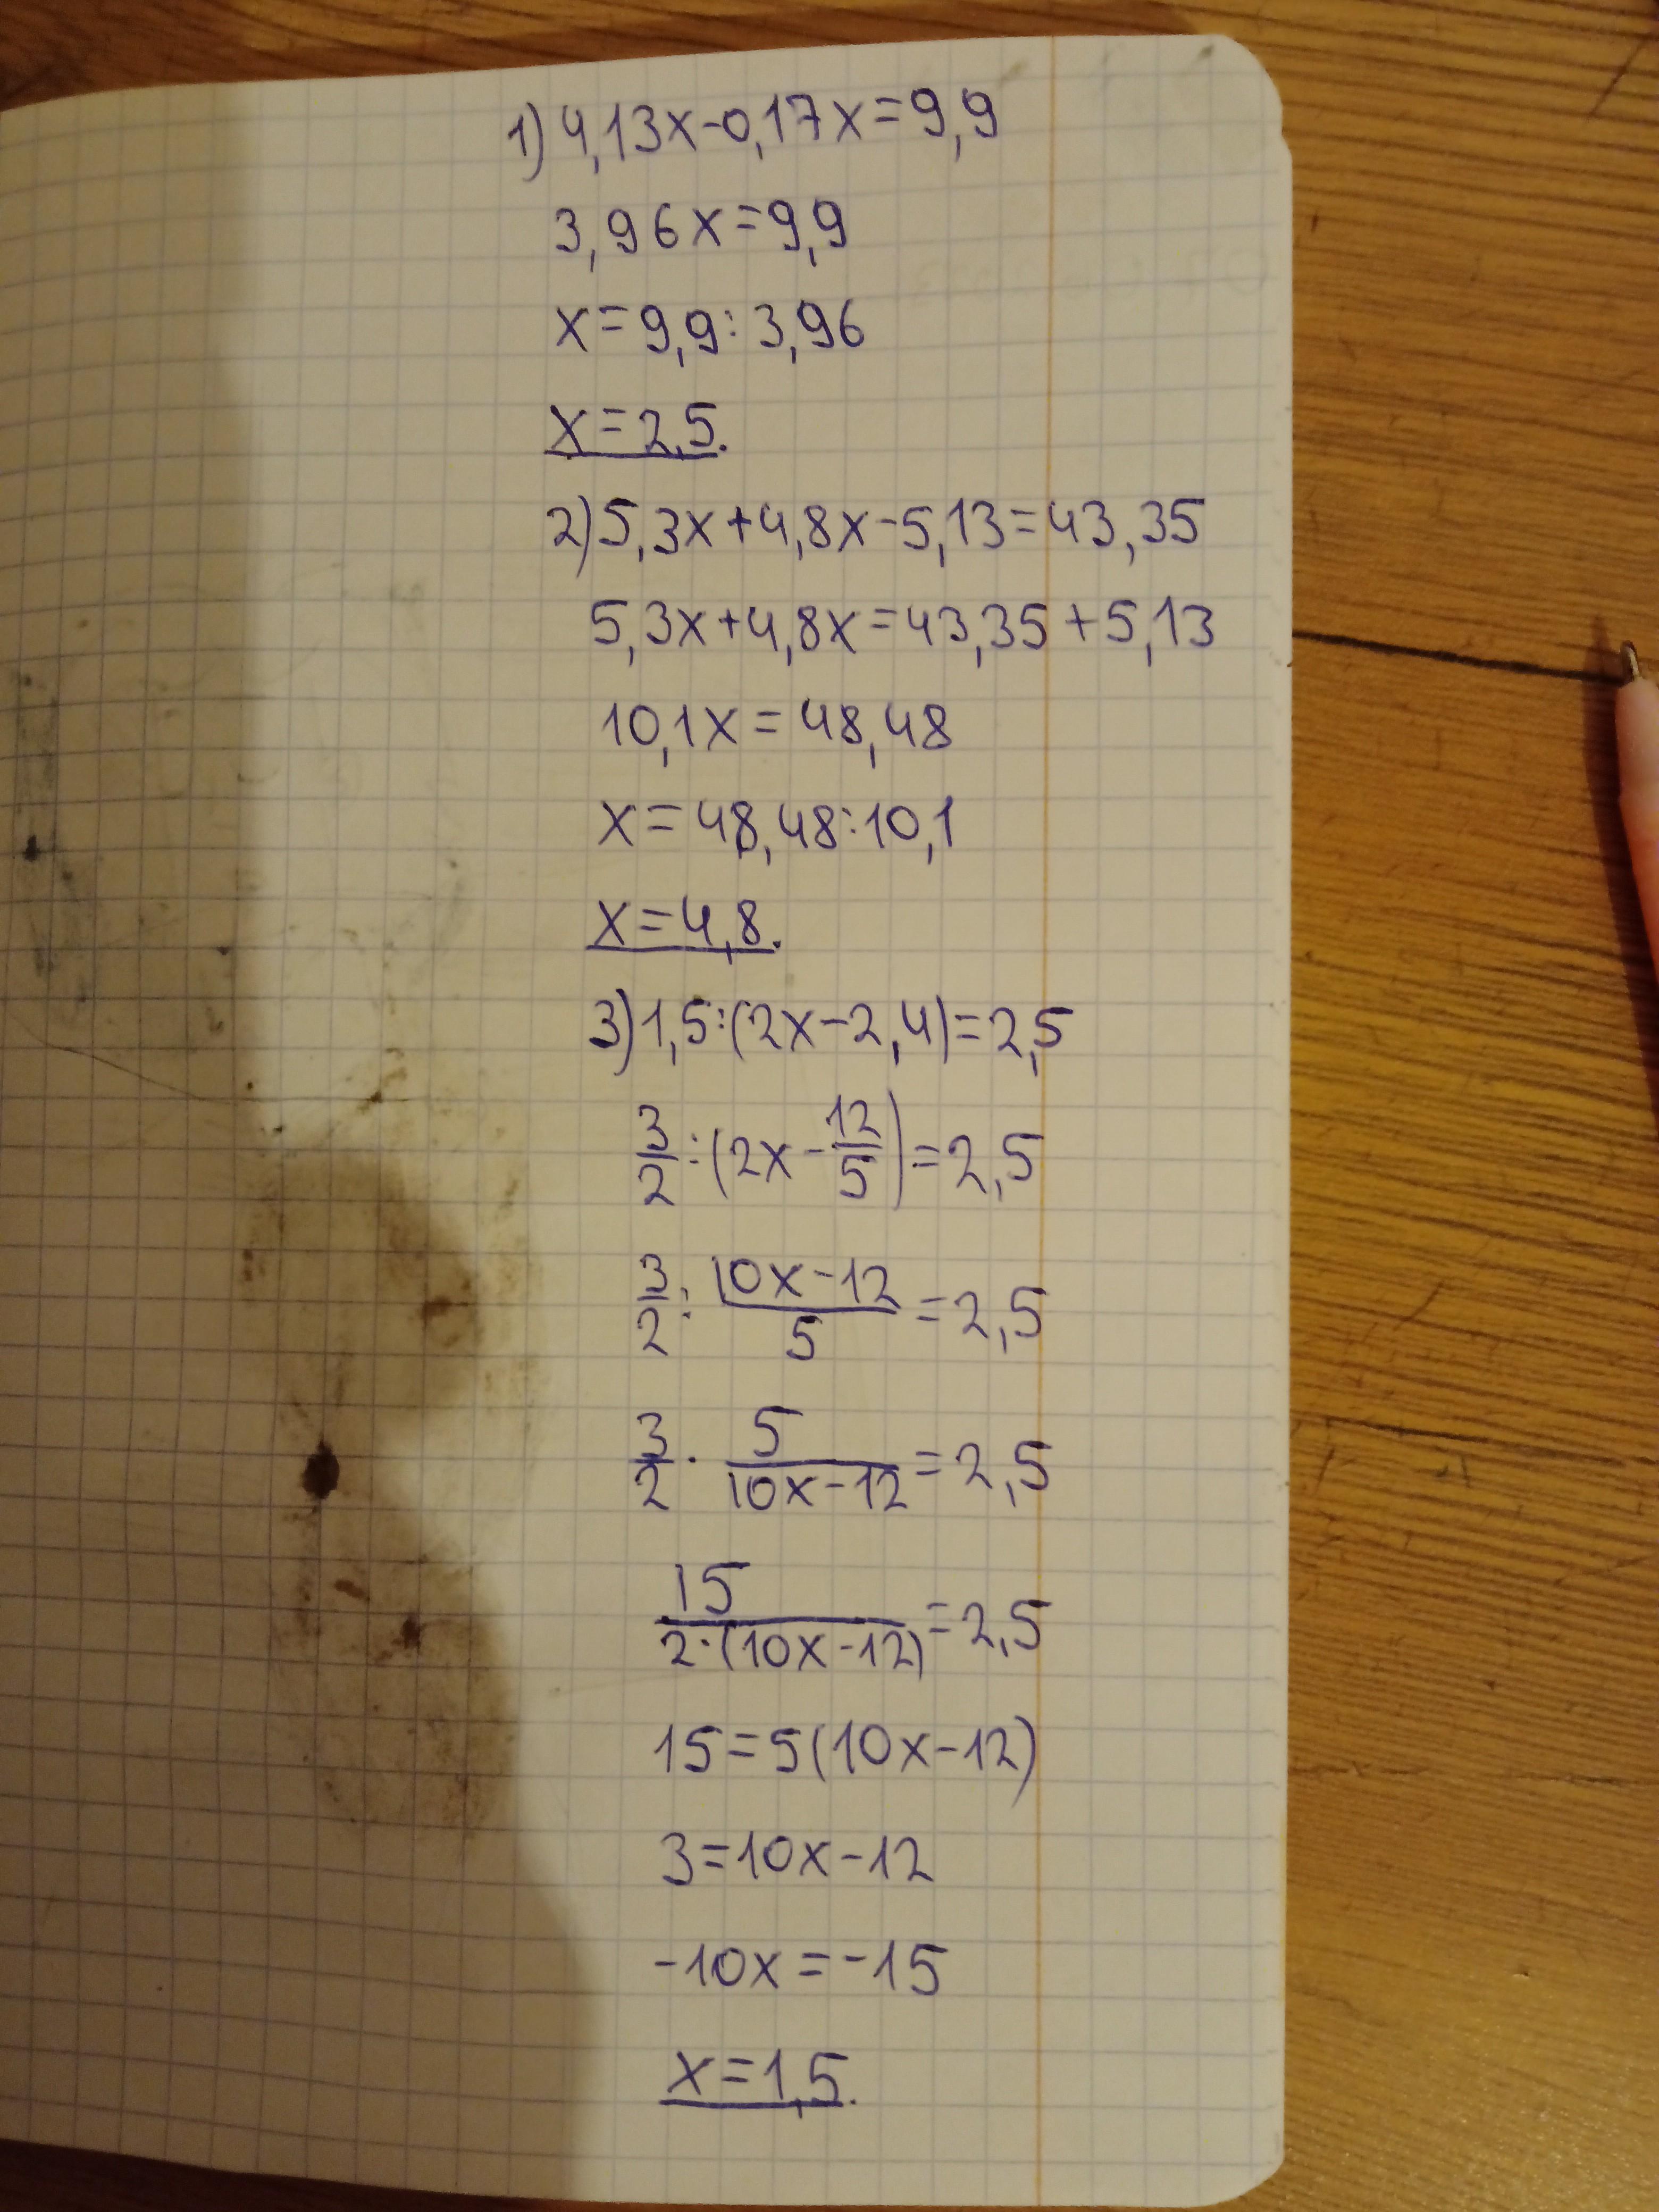 1) 4,13x-0,17x=9,9
3,96x=9,9
x=9,9:3,96
x=2,5.
2) 5,3x+4,8x-5,13=43,35
5,3x+4,8x=43,35+5,13
10,1x=48,48
x=48,48:10,1
x=4,8.
3) 1,5:(2x-2,4)=2,5
3/2:(2x-12/5)=2,5
3/2:(10x-12)/5=2,5
3/2·5/(10x-12)=2,5
15/(2·(10x-12))=2,5
15=5(10x-12)
3=10x-12
-10x=-15
x=1,5.